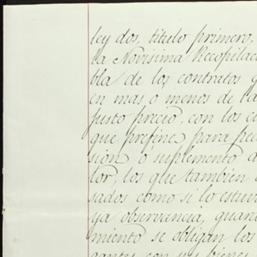 ley dos, titulo primero,
la Novisima Recopilac
bla de los contratos y
en mas o menos de la
justo precio, con los
que prefine para
sion o suplemento
lor, los que tambien
sados como si lo estuv
ya observancia, quan
miento se obligan los